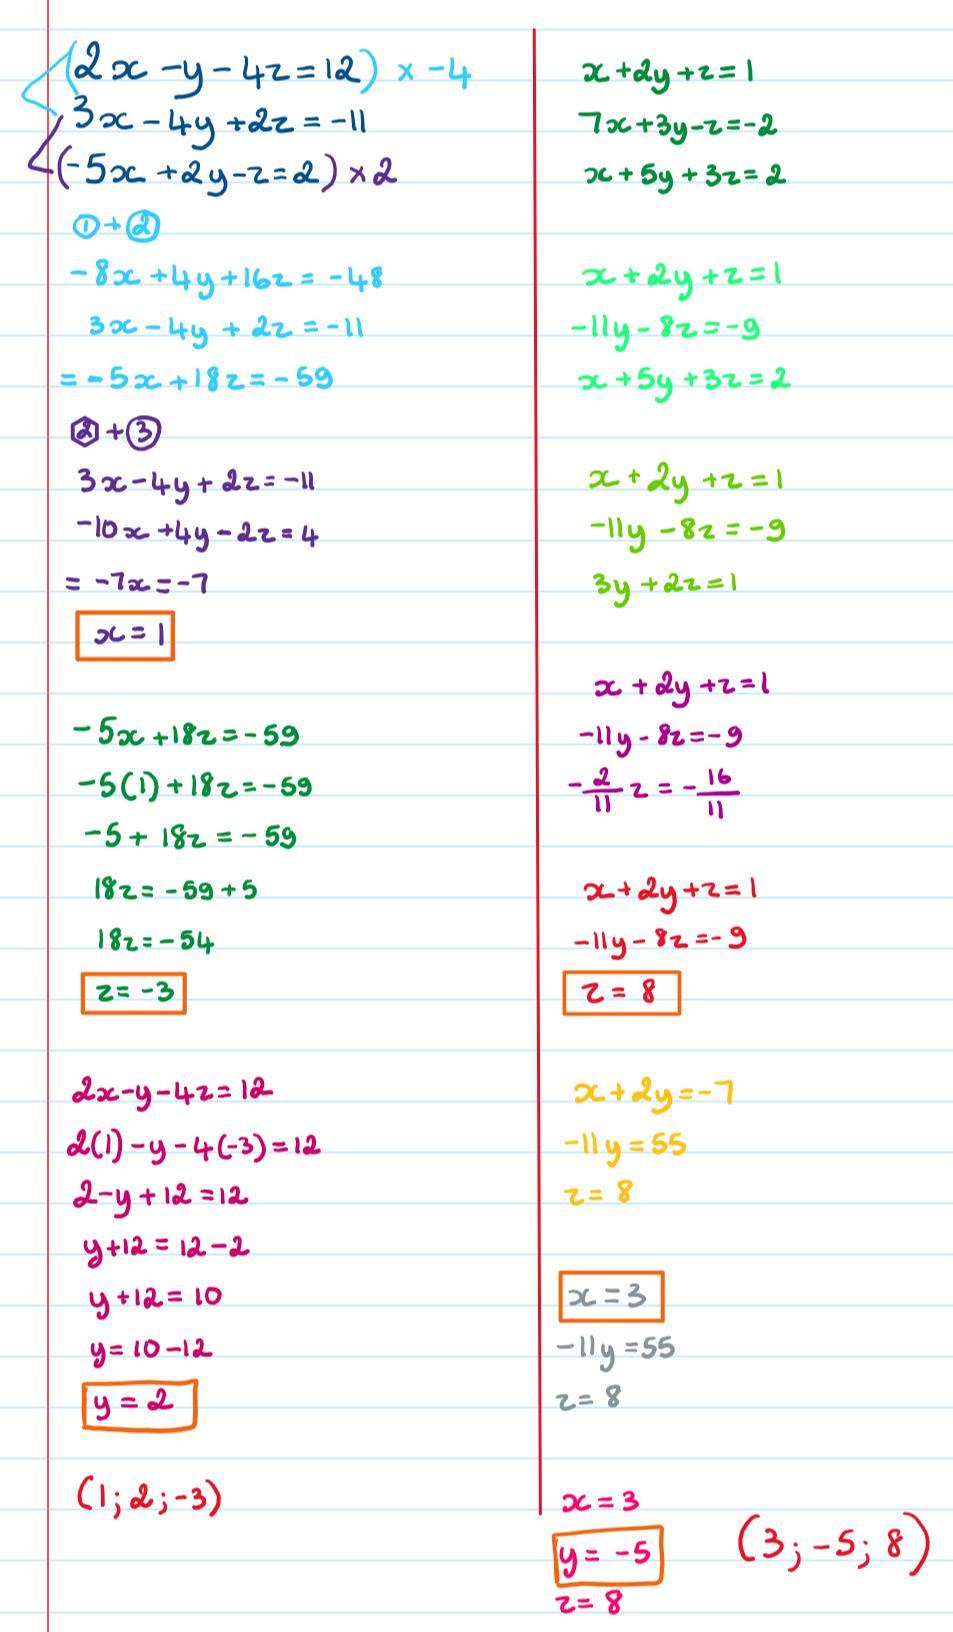 (2x - y - 4z = 12) × -4
3x - 4y + 2z = -11
(-5x + 2y - z = 2) × 2
① + ②
-8x + 4y + 16z = -48
3x - 4y + 2z = -11
= -5x + 18z = -59
② + ③
3x - 4y + 2z = -11
-10x + 4y - 2z = 4
= -7x = -7
x = 1
-5x + 18z = -59
-5(1) + 18z = -59
-5 + 18z = -59
18z = -59 + 5
18z = -54
z = -3
2x - y - 4z = 12
2(1) - y - 4(-3) = 12
2 - y + 12 = 12
y + 12 = 12 - 2
y + 12 = 10
y = 10 - 12
y = 2
(1; 2; -3)
x + 2y + z = 1
7x + 3y - z = -2
x + 5y + 3z = 2
x + 2y + z = 1
-11y - 8z = -9
x + 5y + 3z = 2
x + 2y + z = 1
-11y - 8z = -9
3y + 2z = 1
x + 2y + z = 1
-11y - 8z = -9
-2/11 z = -16/11
x + 2y + z = 1
-11y - 8z = -9
z = 8
x + 2y = -7
-11y = 55
z = 8
x = 3
-11y = 55
z = 8
x = 3
y = -5
z = 8
(3; -5; 8)